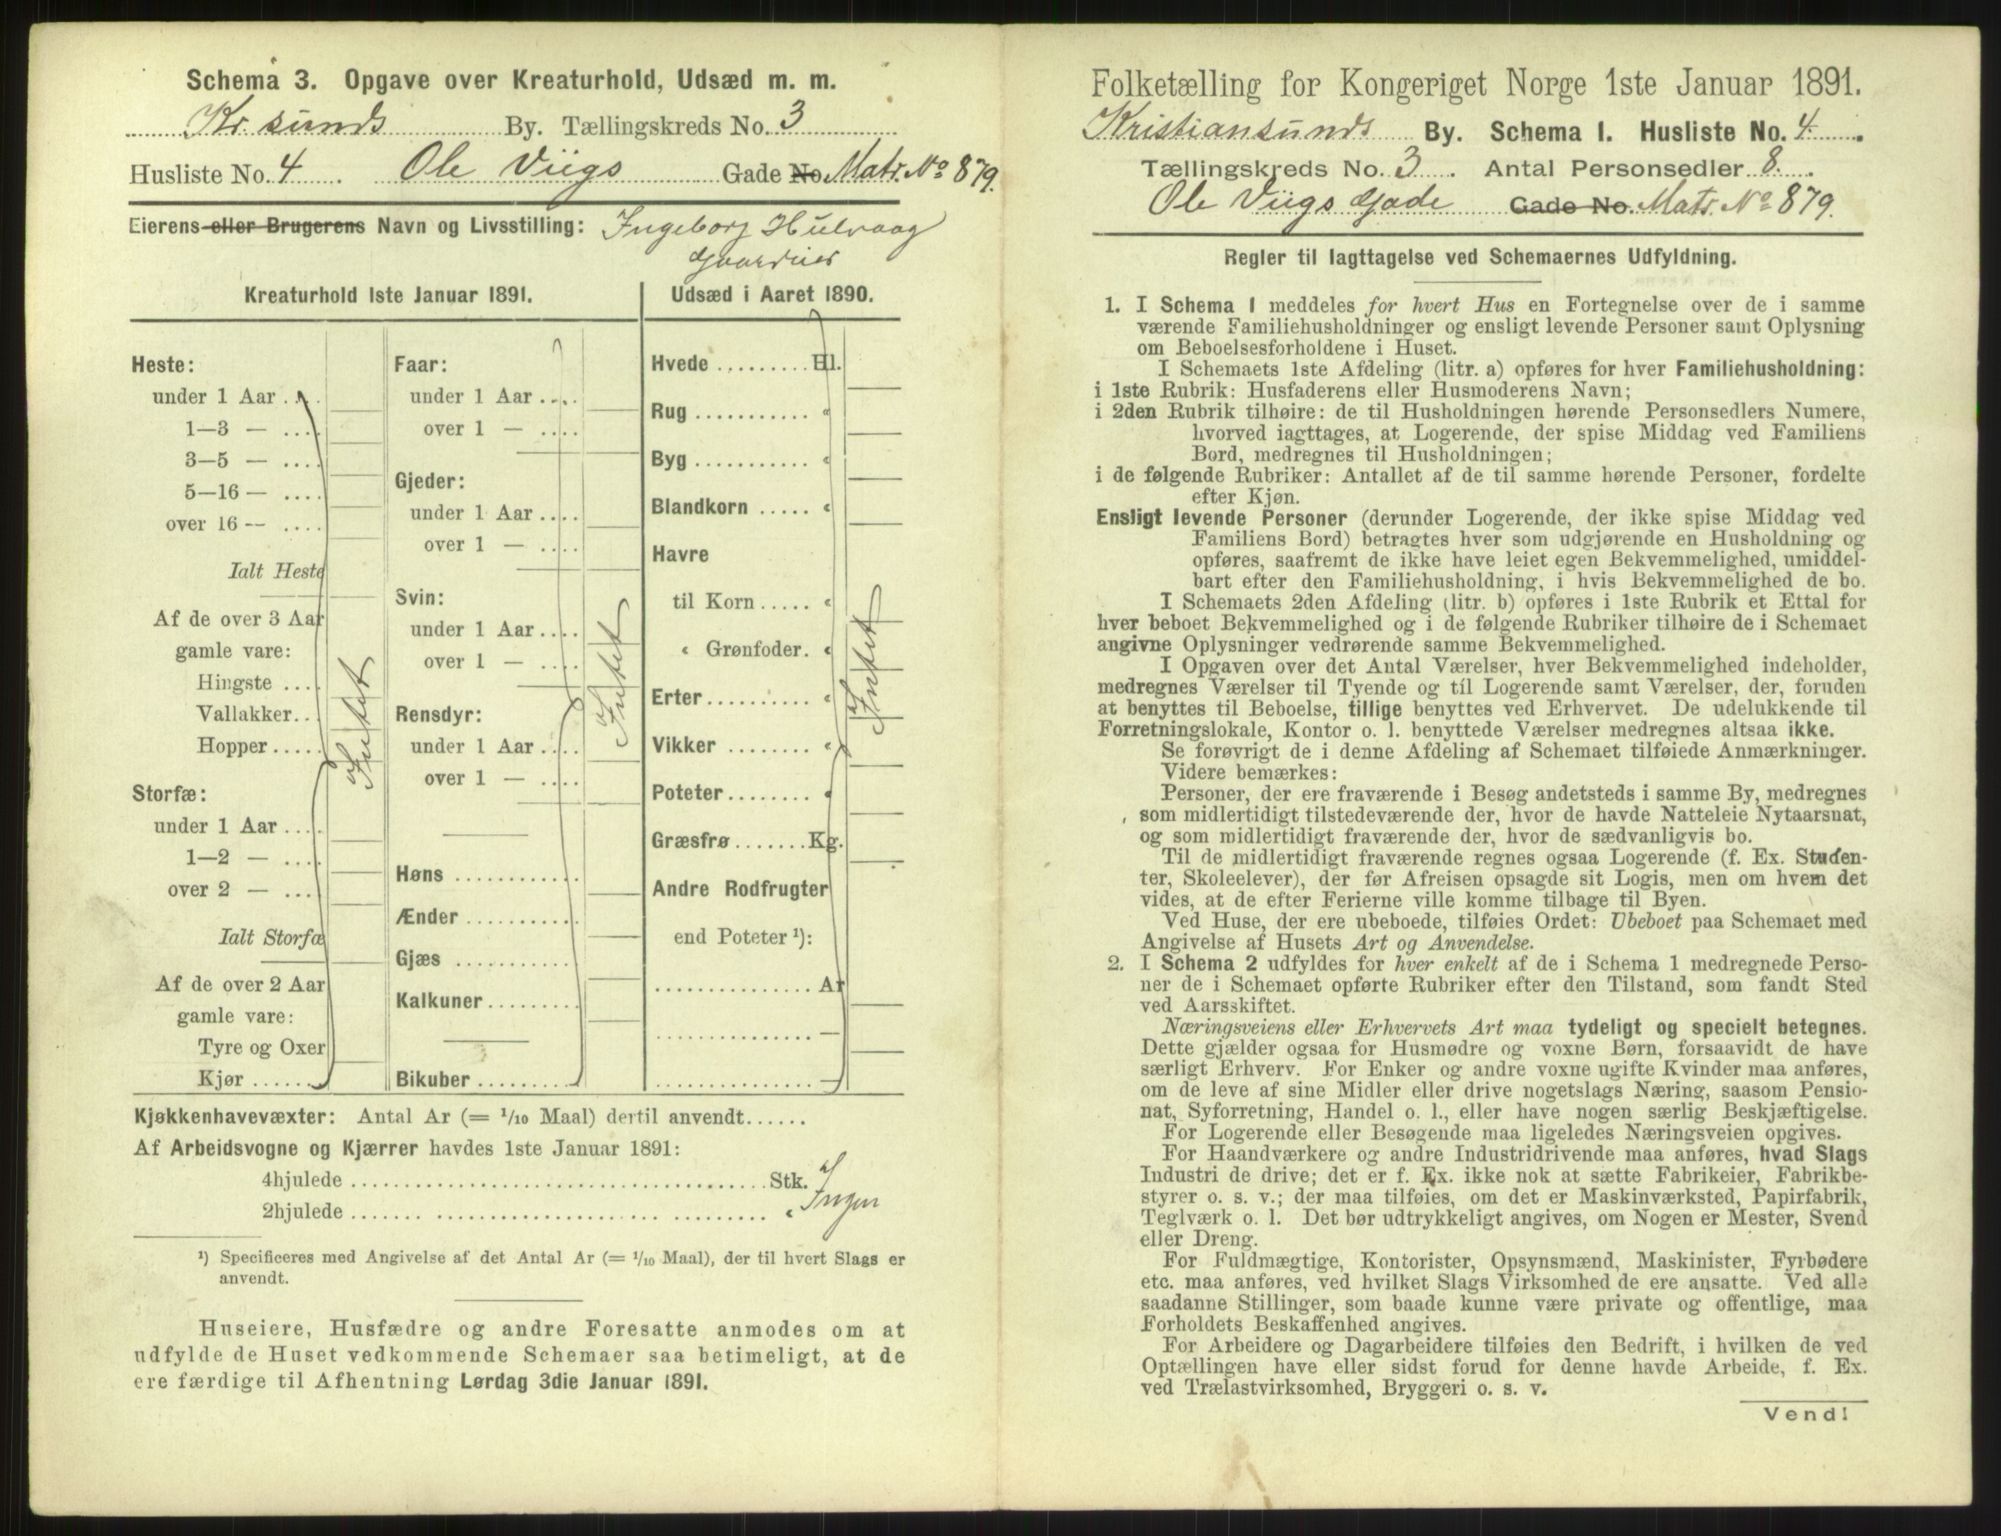 Schema 3. Opgave over Kreaturhold, Udsæd m. m.
Kr.sunds By. Tællingskreds No. 3
Husliste No. 4 Ole Viigs Gade No. Matr. No 879.
Eierens eller Brugerens Navn og Livsstilling: Ingeborg Hulvaag
Kreaturhold 1ste Januar 1891.
Heste:
under 1 Aar ....
1—3 — ....
3—5 — ....
5—16 — ....
over 16 — ....
Ialt Heste
Af de over 3 Aar
gamle vare:
Hingste ....
Vallakker...
Hopper.....
Intet
Storfæ:
under 1 Aar ....
1—2 — ....
over 2 — ....
Ialt Storfæ
Af de over 2 Aar
gamle vare:
Tyre og Oxer
Kjør ......
Faar:
under 1 Aar ....
over 1 — ....
Gjeder:
under 1 Aar ....
over 1 — ....
Svin:
under 1 Aar ....
over 1 — ....
Rensdyr:
under 1 Aar ....
over 1 — ....
Intet
Høns ..........
Ænder .........
Gjæs ..........
Kalkuner........
Bikuber.........
Udsæd i Aaret 1890.
Hvede ......... Hl.
Rug ........... "
Byg ........... "
Blandkorn ..... "
Havre
til Korn ..... "
" Grønfoder. "
Erter.......... "
Vikker ........ "
Poteter........ "
Græsfrø .......Kg.
Andre Rodfrugter
end Poteter ¹):
............... Ar
............... —
............... —
Intet
Kjøkkenhavevæxter: Antal Ar (= 1/10 Maal) dertil anvendt......
Af Arbeidsvogne og Kjærrer havdes 1ste Januar 1891:
4hjulede ....................................Stk.
2hjulede .................................... "
Ingen
¹) Specificeres med Angivelse af det Antal Ar (= 1/10 Maal), der til hvert Slags er
anvendt.
Huseiere, Husfædre og andre Foresatte anmodes om at
udfylde de Huset vedkommende Schemaer saa betimeligt, at de
ere færdige til Afhentning Lørdag 3die Januar 1891.
Folketælling for Kongeriget Norge 1ste Januar 1891.
Kristiansunds By. Schema 1. Husliste No. 4.
Tællingskreds No. 3. Antal Personsedler 8.
Ole Viigs Gade Gade No. Matr. No 879.
Regler til Iagttagelse ved Schemaernes Udfyldning.
1. I Schema 1 meddeles for hvert Hus en Fortegnelse over de i samme
værende Familiehusholdninger og ensligt levende Personer samt Oplysning
om Beboelsesforholdene i Huset.
I Schemaets 1ste Afdeling (litr. a) opføres for hver Familiehusholdning:
i 1ste Rubrik: Husfaderens eller Husmoderens Navn;
i 2den Rubrik tilhøire: de til Husholdningen hørende Personsedlers Numere,
hvorved iagttages, at Logerende, der spise Middag ved Familiens
Bord, medregnes til Husholdningen;
i de følgende Rubriker: Antallet af de til samme hørende Personer, fordelte
efter Kjøn.
Ensligt levende Personer (derunder Logerende, der ikke spise Middag ved
Familiens Bord) betragtes hver som udgjørende en Husholdning og
opføres, saafremt de ikke have leiet egen Bekvemmelighed, umiddel-
bart efter den Familiehusholdning, i hvis Bekvemmelighed de bo.
I Schemaets 2den Afdeling (litr. b) opføres i 1ste Rubrik et Ettal for
hver beboet Bekvemmelighed og i de følgende Rubriker tilhøire de i Schemaet
angivne Oplysninger vedrørende samme Bekvemmelighed.
I Opgaven over det Antal Værelser, hver Bekvemmelighed indeholder,
medregnes Værelser til Tyende og til Logerende samt Værelser, der, foruden
at benyttes til Beboelse, tillige benyttes ved Erhvervet. De udelukkende til
Forretningslokale, Kontor o. l. benyttede Værelser medregnes altsaa ikke.
Se forøvrigt de i denne Afdeling af Schemaet tilføiede Anmærkninger.
Videre bemærkes:
Personer, der ere fraværende i Besøg andetsteds i samme By, medregnes
som midlertidigt tilstedeværende der, hvor de havde Natteleie Nytaarsnat,
og som midlertidigt fraværende der, hvor de sædvanligvis bo.
Til de midlertidigt fraværende regnes ogsaa Logerende (f. Ex. Studen-
ter, Skoleelever), der før Afreisen opsagde sit Logis, men om hvem det
vides, at de efter Ferierne ville komme tilbage til Byen.
Ved Huse, der ere ubeboede, tilføies Ordet: Ubeboet paa Schemaet med
Angivelse af Husets Art og Anvendelse.
2. I Schema 2 udfyldes for hver enkelt af de i Schema 1 medregnede Perso-
ner de i Schemaet opførte Rubriker efter den Tilstand, som fandt Sted
ved Aarsskiftet.
Næringsveiens eller Erhvervets Art maa tydeligt og specielt betegnes.
Dette gjælder ogsaa for Husmødre og voxne Børn, forsaavidt de have
særligt Erhverv. For Enker og andre voxne ugifte Kvinder maa anføres,
om de leve af sine Midler eller drive nogetslags Næring, saasom Pensio-
nat, Syforretning, Handel o. l., eller have nogen særlig Beskjæftigelse.
For Logerende eller Besøgende maa ligeledes Næringsveien opgives.
For Haandværkere og andre Industridrivende maa anføres, hvad Slags
Industri de drive; det er f. Ex. ikke nok at sætte Fabrikeier, Fabrikbe-
styrer o. s. v.; der maa tilføies, om det er Maskinværksted, Papirfabrik,
Teglværk o. l. Det bør udtrykkeligt angives, om Nogen er Mester, Svend
eller Dreng.
For Fuldmægtige, Kontorister, Opsynsmænd, Maskinister, Fyrbødere
etc. maa anføres, ved hvilket Slags Virksomhed de ere ansatte. Ved alle
saadanne Stillinger, som baade kunne være private og offentlige, maa
Forholdets Beskaffenhed angives.
For Arbeidere og Dagarbeidere tilføies den Bedrift, i hvilken de ved
Optællingen have eller sidst forud for denne havde Arbeide, f. Ex.
ved Trælastvirksomhed, Bryggeri o. s. v.
Vend!